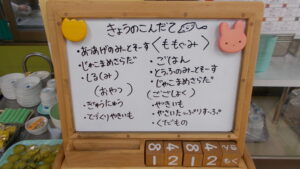 きょうのこんだて
・おあげのみーとそーす
・じゃこまめさらだ
・しる(み)
(おやつ)
・ぎゅうにゅう
・てづくりやきいも
〈ももぐみ〉
・ごはん
・とうふのみーとそーす
・じゃこまめさらだ
(ごごしょく)
・やきいも
・やさいたっぷりすーぷ
・くだもの